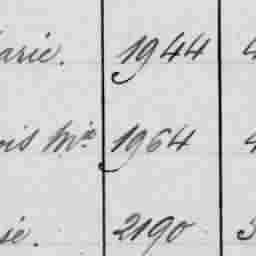 arie. 1944 4
ois Mie 1964 4
sé. 2190 3